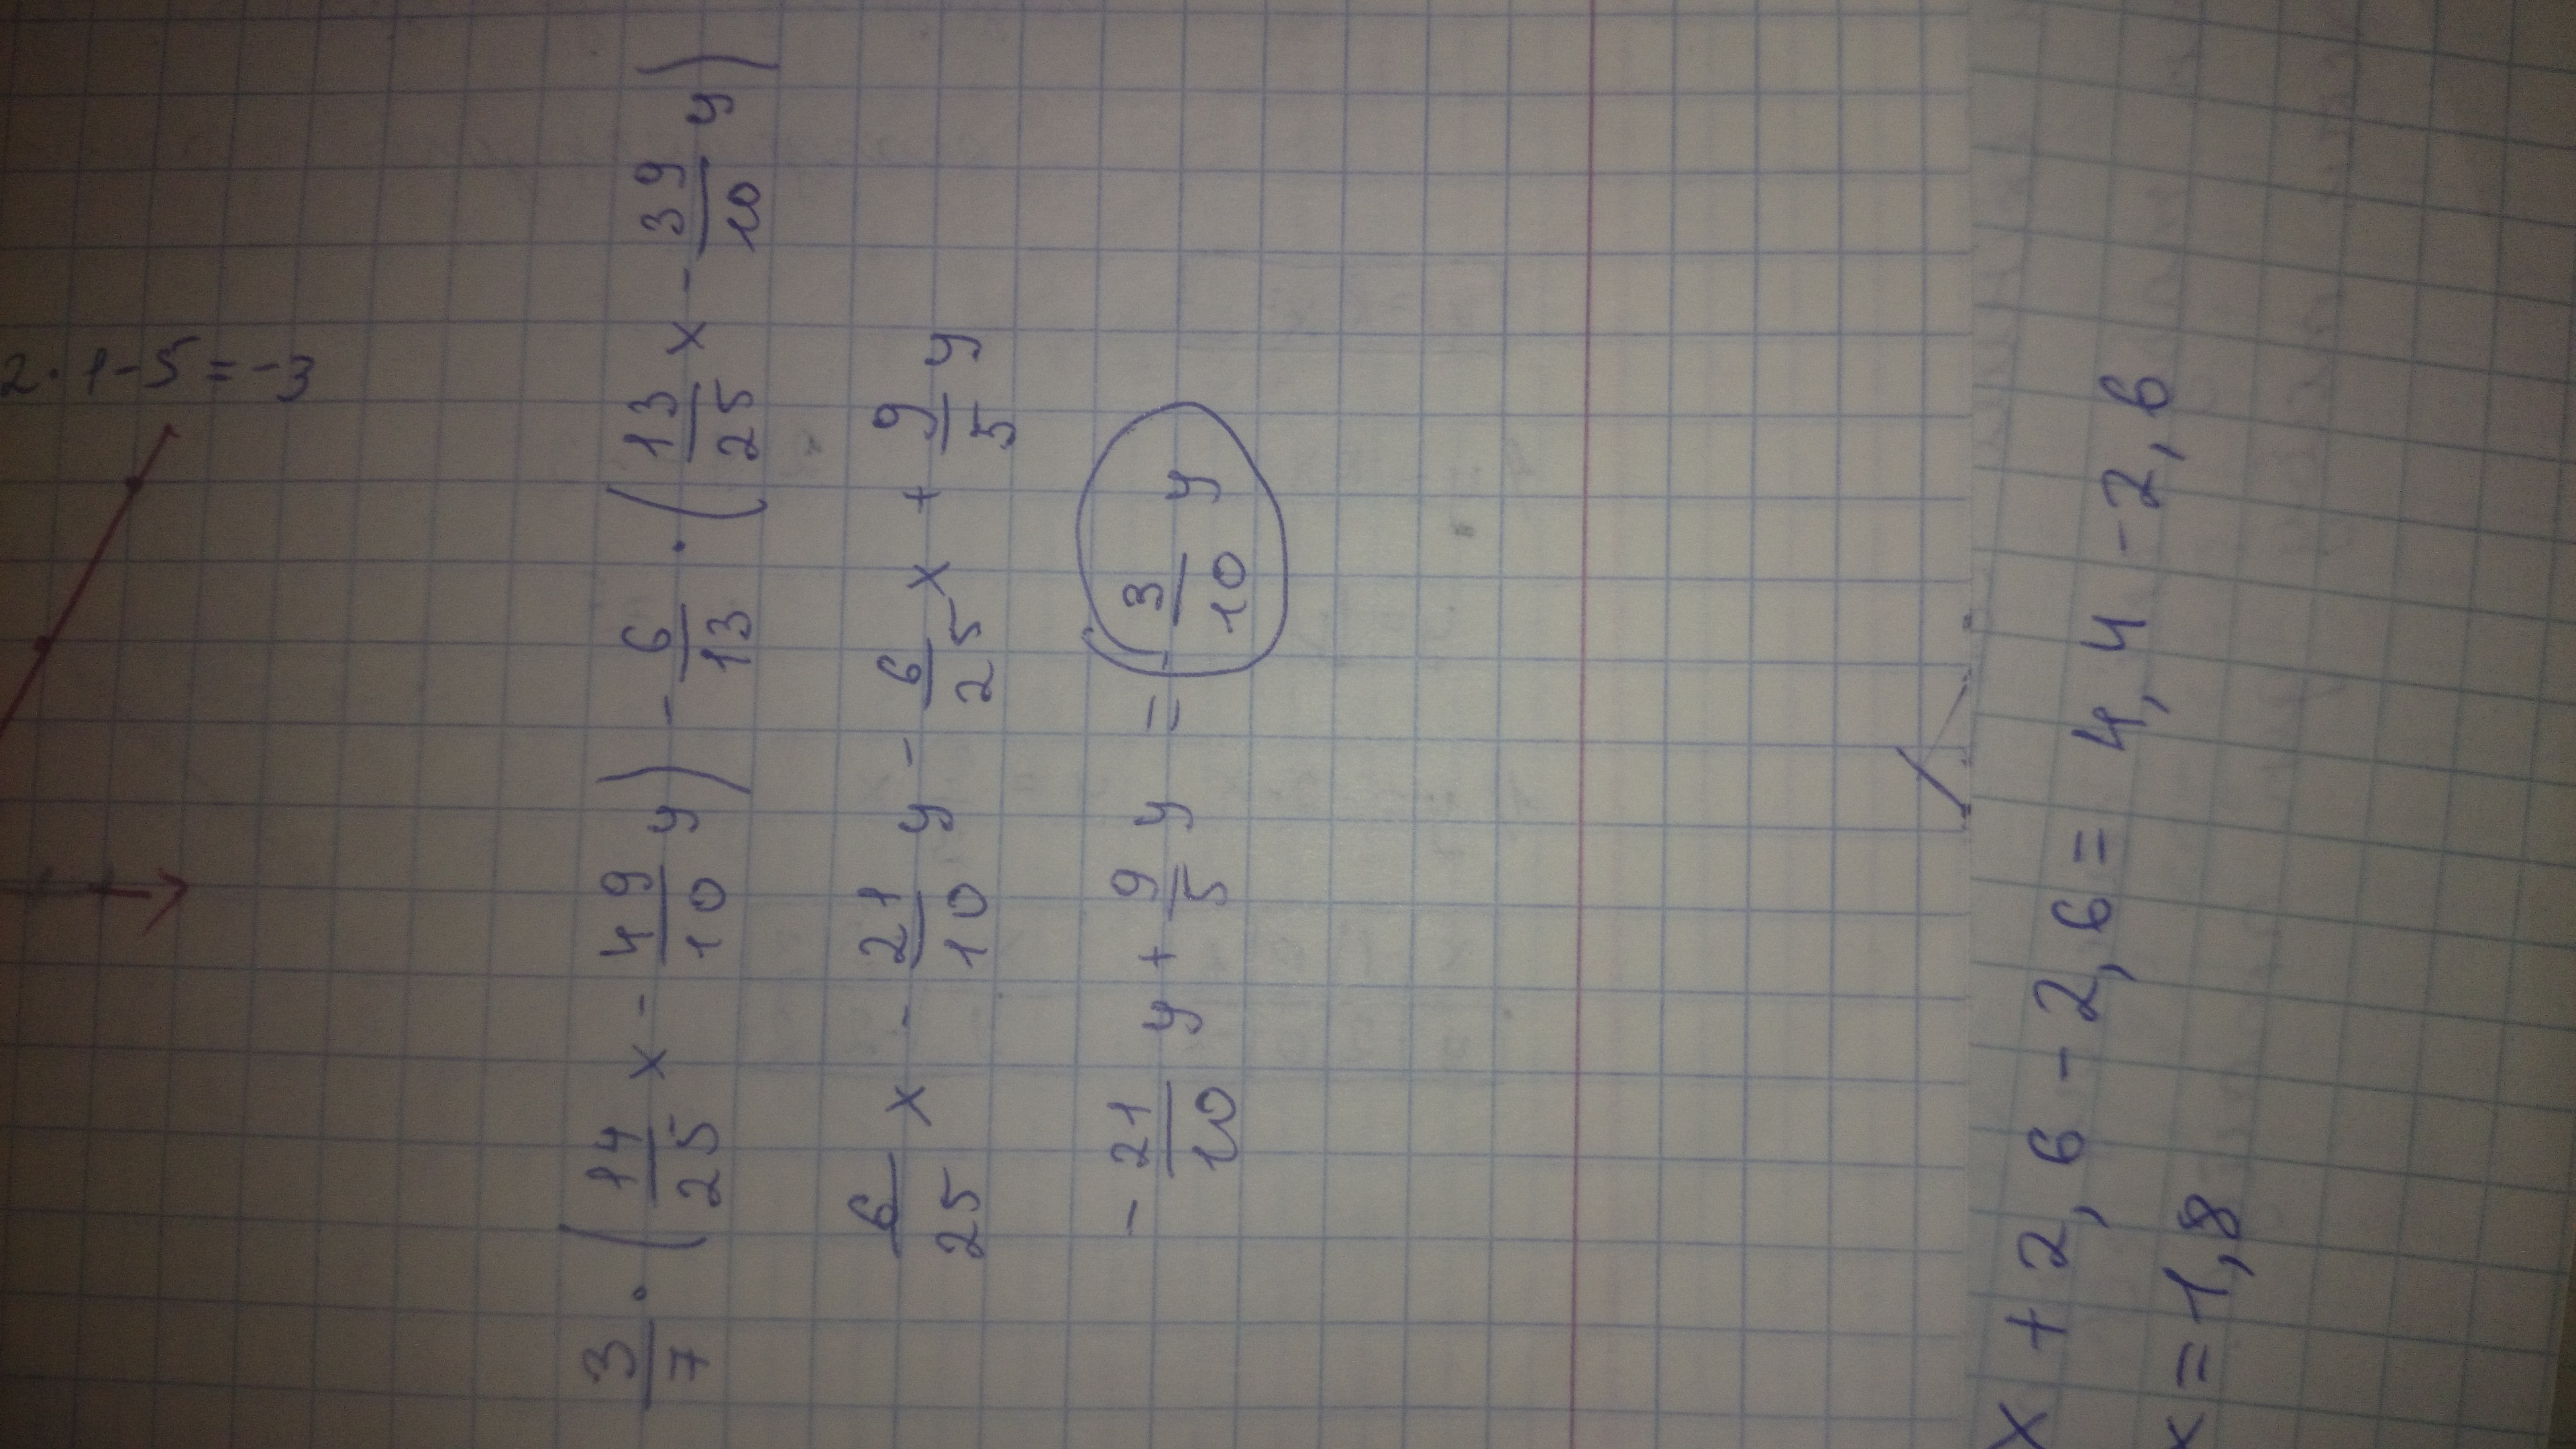 2 · 1 - 5 = -3
3/7 · (14/25 x - 49/10 y) - 6/13 · (13/25 x - 39/10 y)
6/25 x - 21/10 y - 6/25 x + 9/5 y
- 21/10 y + 9/5 y = - 3/10 y
x + 2,6 - 2,6 = 4,4 - 2,6
x = 1,8